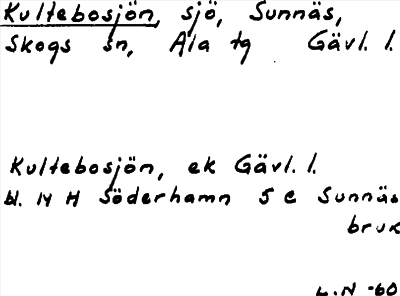 Kultebosjön, sjö, Sunnäs,
Skogs sn, Ala tg Gävl. l.
Kultebosjön, ek Gävl. l.
bl. 14 H Söderhamn 5 c Sunnäs
bruk
L.N -60